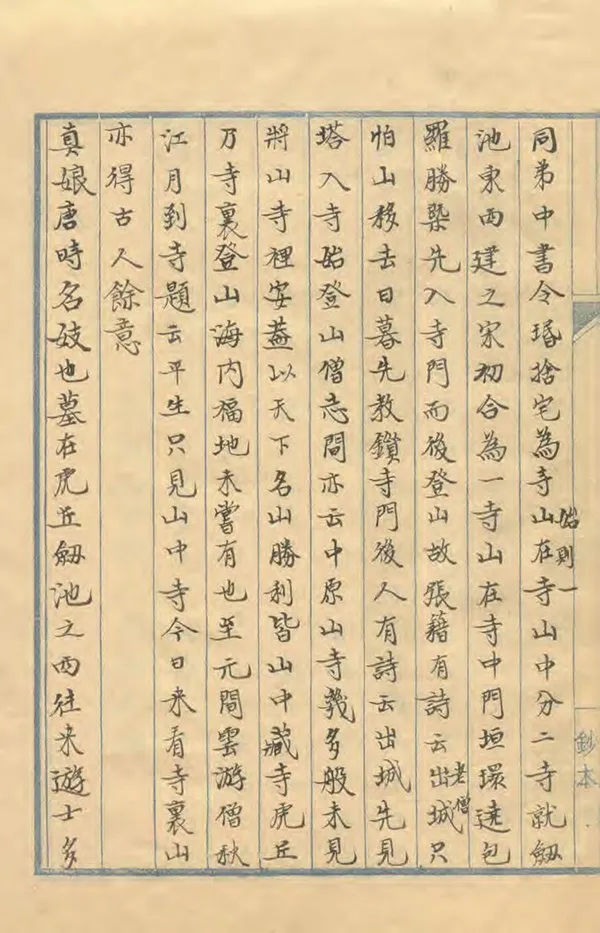 鈔本
同弟中書令珉捨宅為寺山在寺山中分二寺就劔
始則一
池東西建之宋初合為一寺山在寺中門垣環遶包
羅勝槩先入寺門而後登山故張籍有詩云出城只
老僧
怕山移去日暮先教鎖寺門後人有詩云出城先見
塔入寺始登山僧志間亦云中原山寺幾多般未見
將山寺裡安葢以天下名山勝利皆山中藏寺虎丘
乃寺裏登山海内福地未嘗有也至元間雲游僧秋
江月到寺題云平生只見山中寺今日来看寺裏山
亦得古人餘意
真娘唐時名妓也墓在虎丘劔池之西往来遊士多